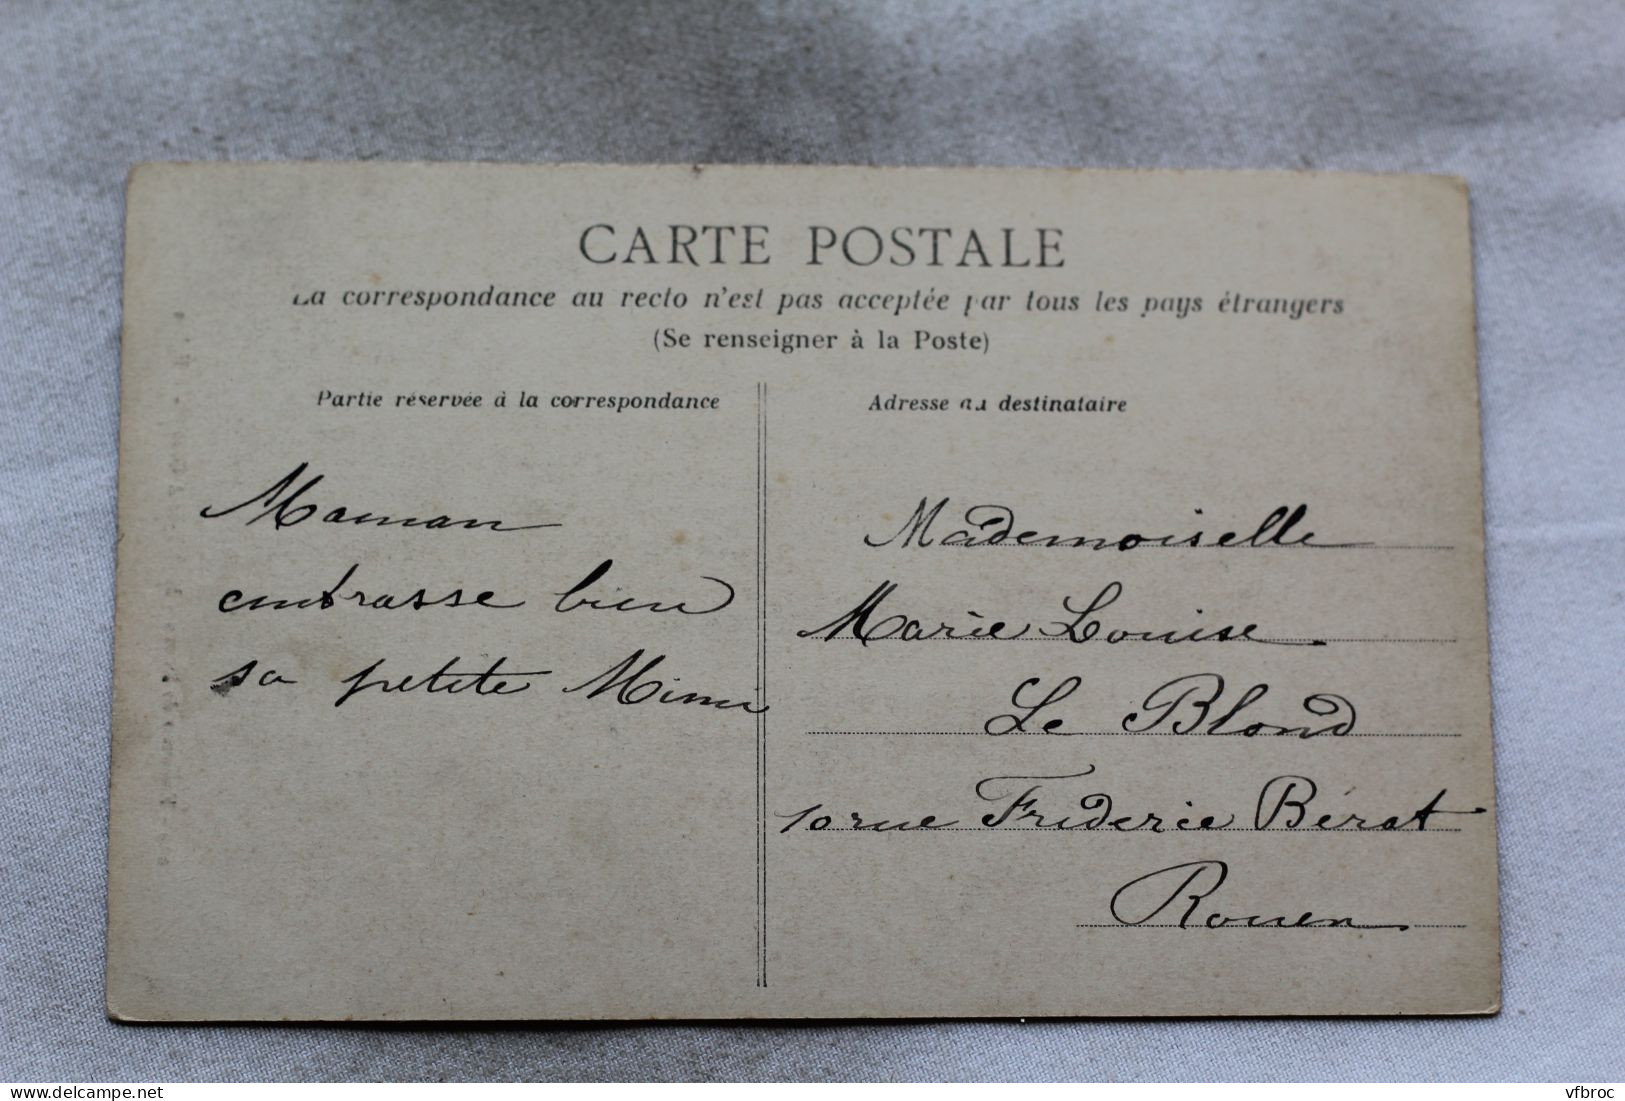 CARTE POSTALE
La correspondance au recto n'est pas acceptée par tous les pays étrangers
(Se renseigner à la Poste)
Partie réservée à la correspondance
Maman
embrasse bien
sa petite Mimi
Adresse du destinataire
Mademoiselle
Marie Louise
Le Blond
10 rue Frideric Bérat
Rouen
delcampe.net
vfbroc